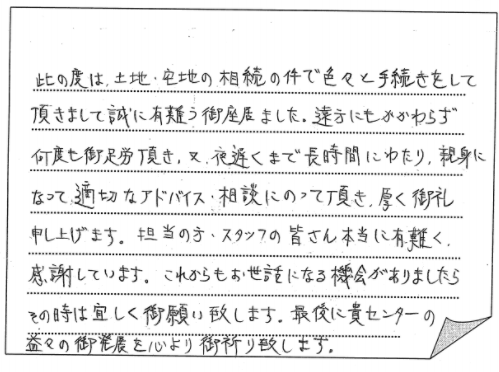 此の度は、土地・宅地の相続の件で色々と手続きをして
頂きまして誠に有難う御座居ました。遠方にもかかわらず
何度も御足労頂き、又、夜遅くまで長時間にわたり、親身に
なって、適切なアドバイス・相談にのって頂き、厚く御礼
申し上げます。担当の方・スタッフの皆さん本当に有難く、
感謝しています。これからもお世話になる機会がありましたら
その時は宜しく御願い致します。最後に貴センターの
益々の御発展を心より御祈り致します。